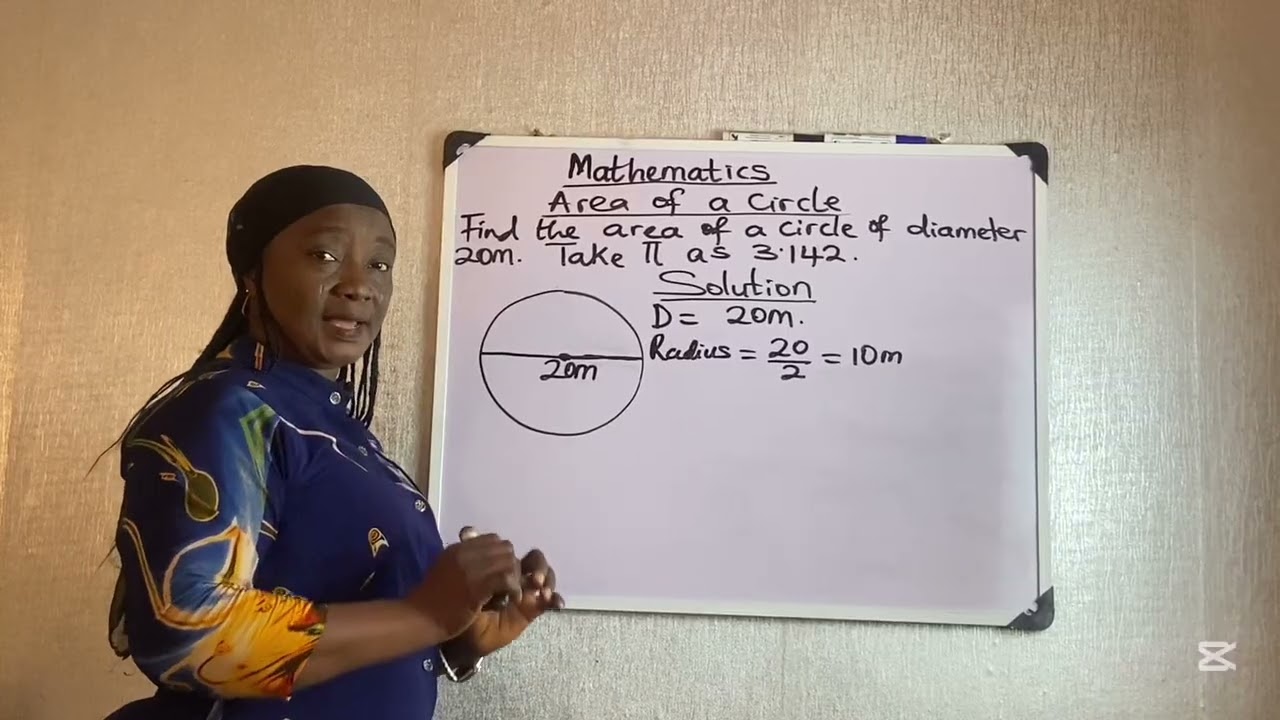 Mathematics
Area of a Circle
Find the area of a circle of diameter
20m. Take π as 3.142.
Solution
D = 20m.
Radius = 20/2 = 10m
20m